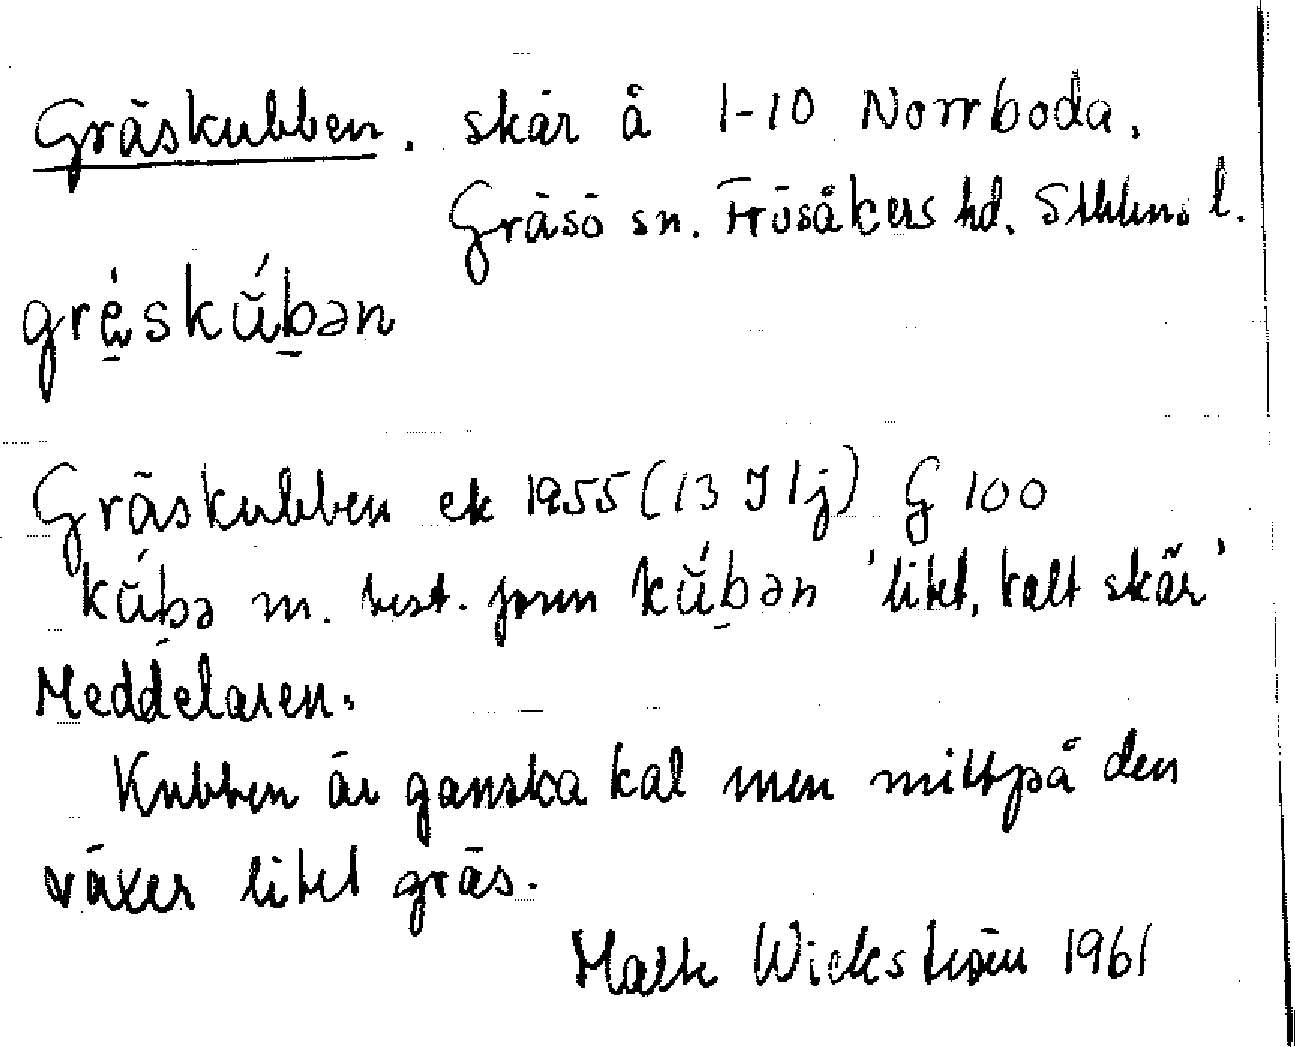 Gräskubben. skär å 1-10 Norrboda.
Gräsö sn. Frösåkers hd. Sthlms l.
gré̱skŭ́ḇən
Gräskubben ek 1955 (13 I 1j) G 100
kŭ́ḇə m. best. form kŭ́ḇən 'litet, kalt skär'
Meddelaren.
Kubben är ganska kal men mittpå den
växer litet gräs.
Malte Wickström 1961